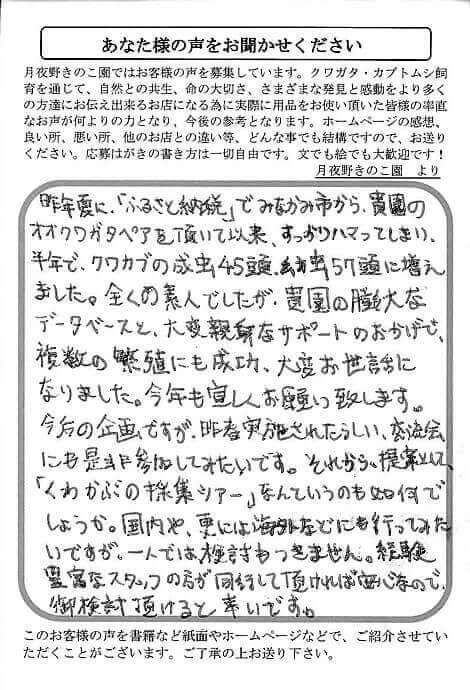 あなた様の声をお聞かせください
月夜野きのこ園ではお客様の声を募集しています。クワガタ・カブトムシ飼
育を通じて、自然との共生、命の大切さ、さまざまな発見と感動をより多く
の方達にお伝え出来るお店になる為に実際に用品をお使い頂いた皆様の率直
なお声が何よりの力となり、今後の参考となります。ホームページの感想、
良い所、悪い所、他のお店との違い等、どんな事でも結構ですので、お送り
ください。応募はがきの書き方は一切自由です。文でも絵でも大歓迎です！
月夜野きのこ園　より
昨年夏に、「ふるさと納税」でみなかみ市から、貴園の
オオクワガタペアを頂いて以来、すっかりハマってしまい、
半年で、クワカブの成虫45頭、幼虫57頭に増え
ました。全くの素人でしたが、貴園の膨大な
データベースと、大変親身なサポートのおかげで、
複数の繁殖にも成功、大変お世話に
なりました。今年も宜しくお願い致します。
今后の企画ですが、昨春実施されたらしい、交流会
にも是非参加してみたいです。それから、提案として、
「くわかぶの採集ツアー」なんていうのも如何で
しょうか。国内や、更には海外などにも行ってみた
いですが、一人では検討もつきません。経験
豊富なスタッフの方が同行して頂ければ安心なので、
御検討頂けると幸いです。
このお客様の声を書籍など紙面やホームページなどで、ご紹介させてい
ただくことがございます。ご了承の上お送り下さい。